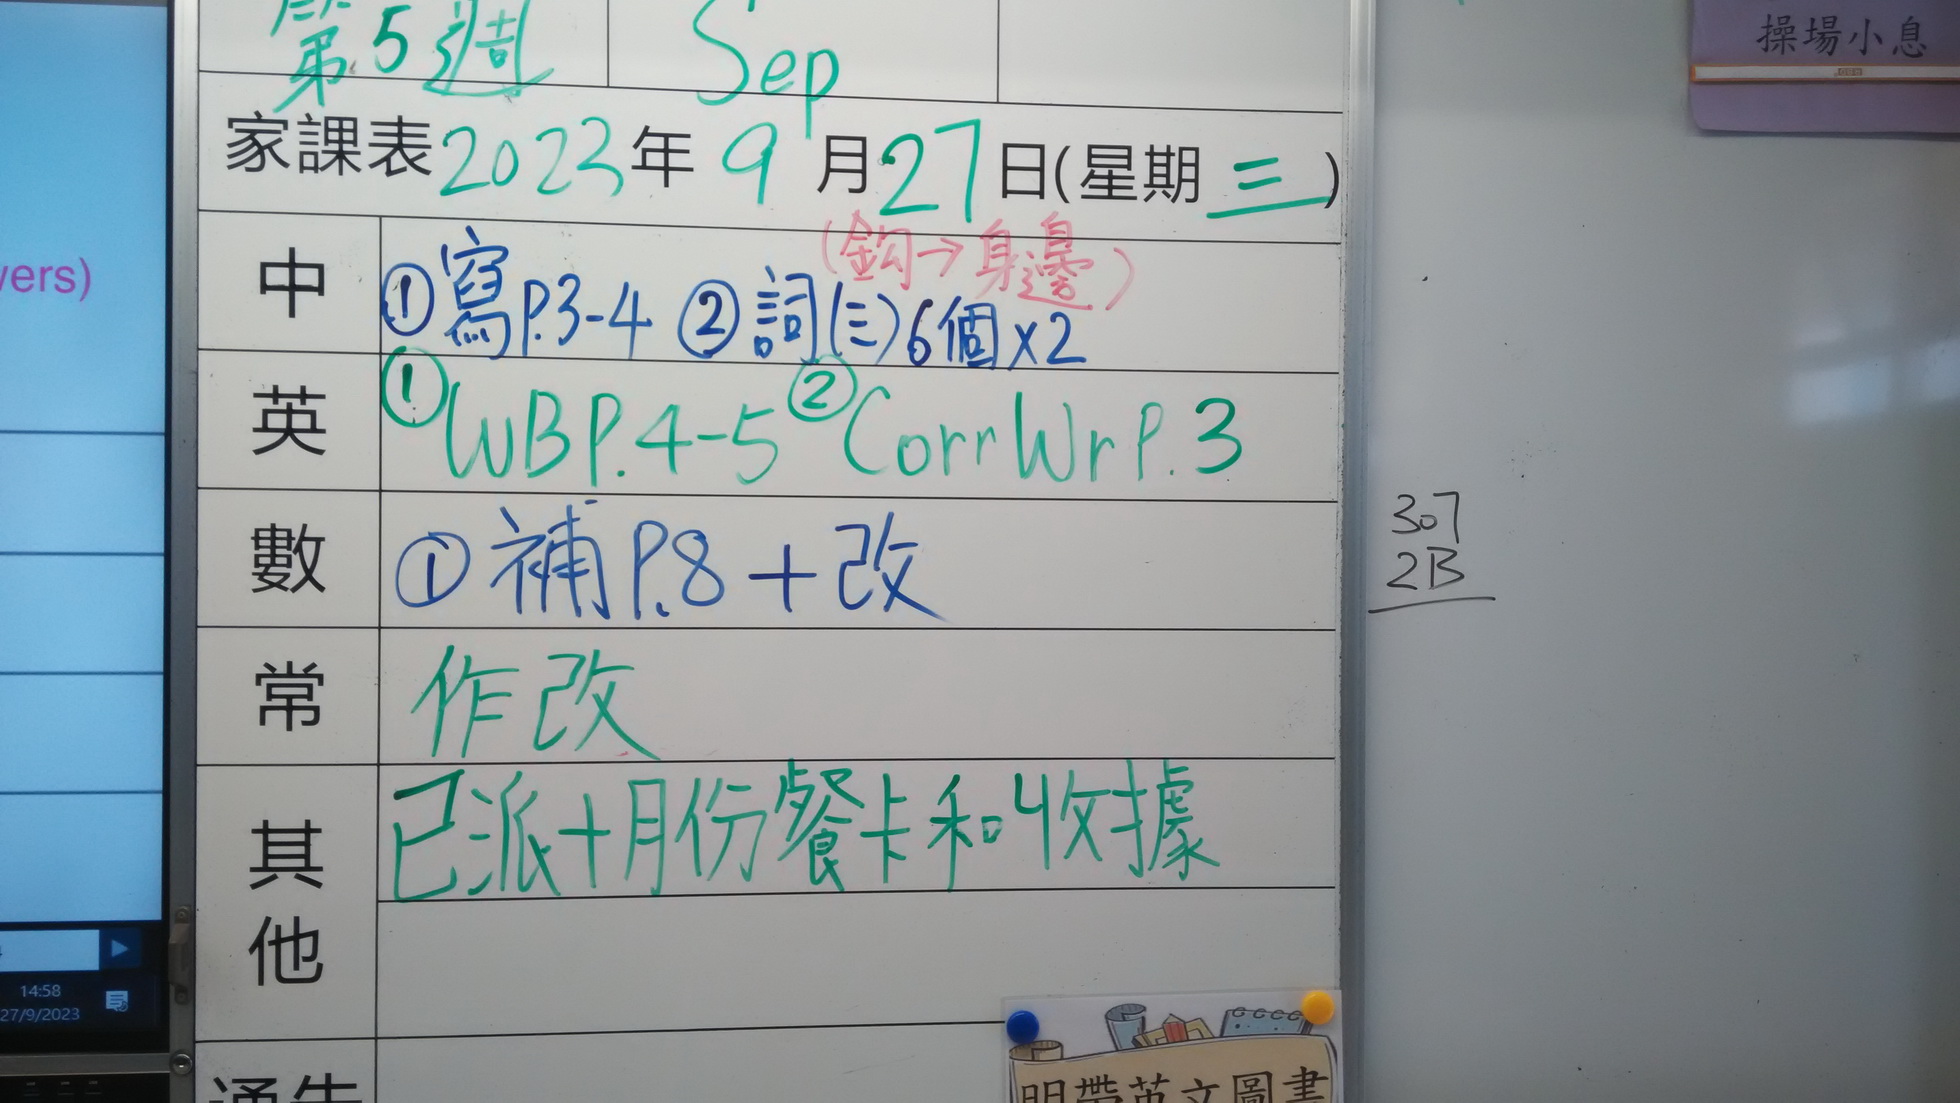 第5週 Sep
操場小息
家課表2023年9月27日(星期三)
vers)
(鈎→身邊)
中 ①寫P.3-4 ②詞(三)6個x2
英 ①WBP.4-5 ②CorrWrP.3
數 ①補P.8+改
307
2B
常 作改
其他 已派十月份餐卡和收據
14:58
27/9/2023
通告
明帶英文圖書